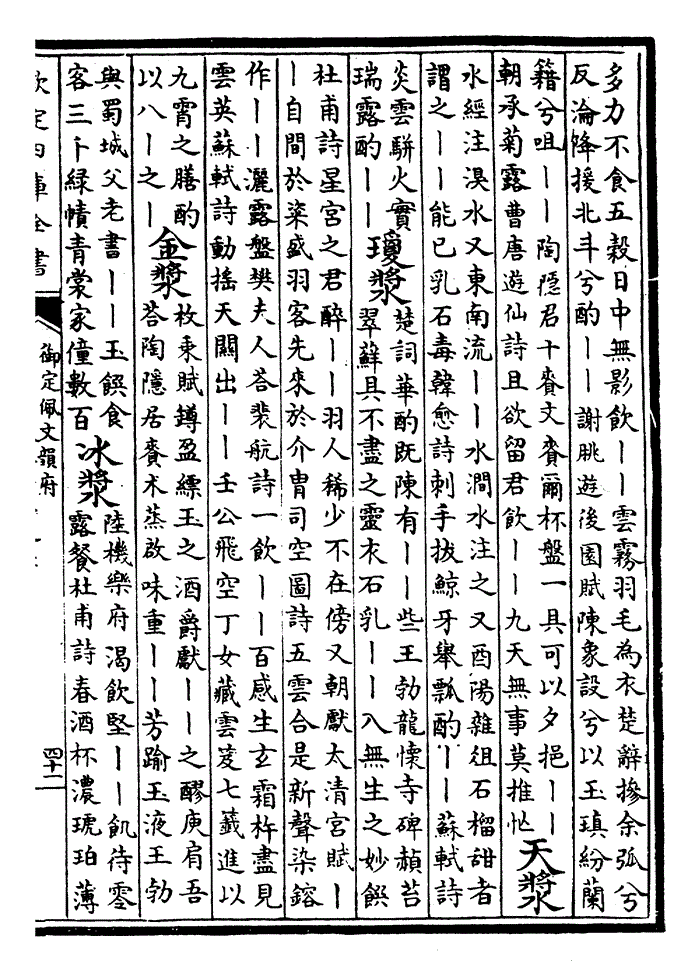 多力不食五穀日中無影飲丨丨雲霧羽毛為衣楚辭摻余弧兮
反淪降援北斗兮酌丨丨謝朓遊後園賦陳象設兮以玉瑱紛蘭
籍兮咀丨丨陶隱君十賚文賚爾杯盤一具可以夕挹丨丨
朝承菊露曹唐遊仙詩且欲留君飲丨丨九天無事莫推忙
天漿
水經注湨水又東南流丨丨水澗水注之又酉陽雜俎石榴甜者
謂之丨丨能已乳石毒韓愈詩刺手拔鯨牙舉瓢酌丨丨蘇軾詩
炎雲駢火實
瑞露酌丨丨
瓊漿
楚詞華酌既陳有丨丨些王勃龍懷寺碑赬苔
翠蘚具不盡之靈衣石乳丨丨入無生之妙饌
杜甫詩星宮之君醉丨丨羽人稀少不在傍又朝獻太清宮賦丨
丨自間於粢盛羽客先來於介冑司空圖詩五雲合是新聲染鎔
作丨丨灑露盤樊夫人荅裴航詩一飲丨丨百感生玄霜杵盡見
雲英蘇軾詩動搖天關出丨丨壬公飛空丁女藏雲笈七籤進以
九霄之膳酌
以八丨之丨
金漿
枚乘賦罇盈縹玉之酒爵獻丨丨之醪庾肩吾
荅陶隱居賚术蒸啟味重丨丨芳踰玉液王勃
與蜀城父老書丨丨玉饌食
客三千緑幘青裳家僮數百
冰漿
陸機樂府渴飲堅丨丨飢待零
露餐杜甫詩春酒杯濃琥珀薄
欽定四庫全書
御定佩文韻府
四十二